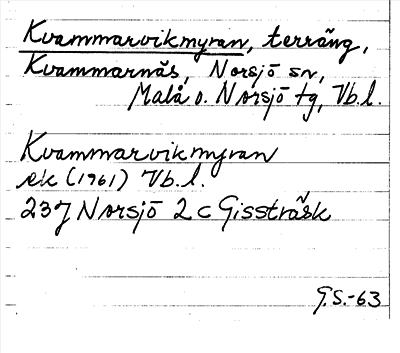 Kvammarvikmyran, terräng,
Kvammarnäs, Norsjö sn,
Malå o. Norsjö tg, Vb.l.
Kvammarvikmyran
ek (1961) Vb.l.
23J Norsjö 2 c Gissträsk
G.S.-63